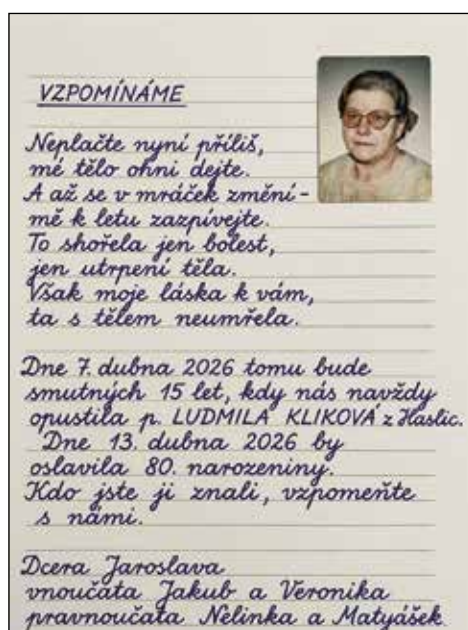 VZPOMÍNÁME
Neplačte nyní příliš,
mé tělo ohni dejte.
A až se v mráček změní -
mě k letu zazpívejte.
To shořela jen bolest,
jen utrpení těla.
Však moje láska k vám,
ta s tělem neumřela.
Dne 7. dubna 2026 tomu bude
smutných 15 let, kdy nás navždy
opustila p. LUDMILA KLIKOVÁ z Haslic.
Dne 13. dubna 2026 by
oslavila 80. narozeniny.
Kdo jste ji znali, vzpomeňte
s námi.
Dcera Jaroslava
vnoučata Jakub a Veronika
pravnoučata Nelinka a Matyášek